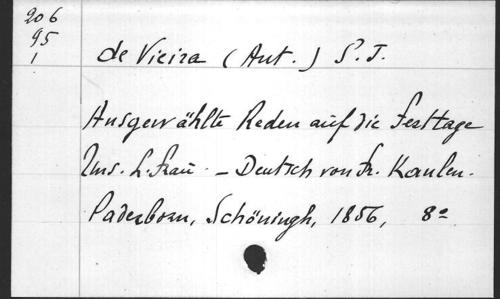 206
95
1
de Vieira (Ant.) S. J.
Ausgewählte Reden auf die Festtage
Uns. L. Frau. - Deutsch von Fr. Kaulen.
Paderborn, Schöningh, 1856, 8º